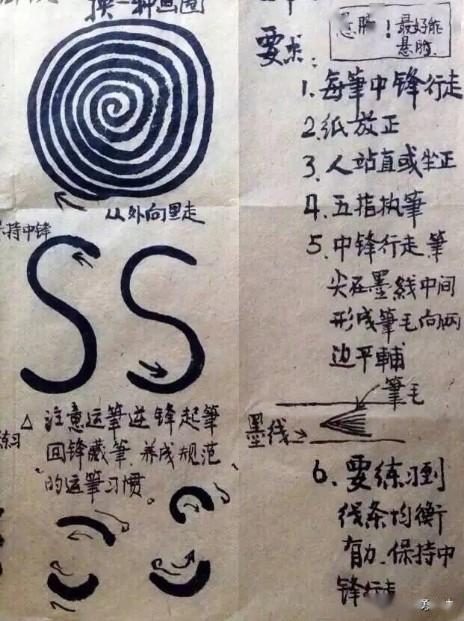 换一种画圈
从外向里走
保持中锋
SS
△ 注意运筆逆锋起筆
回锋藏筆.养成规范
的运筆习惯。
练习
! 最好能
悬腕.
要求:
1.每筆中锋行走
2.纸放正
3.人站直或坐正
4.五指执筆
5.中锋行走.筆
尖在墨线中间
形成筆毛向两
边平輔
筆毛
墨线
6.要练习到
线条均衡
有力.保持中
锋行走